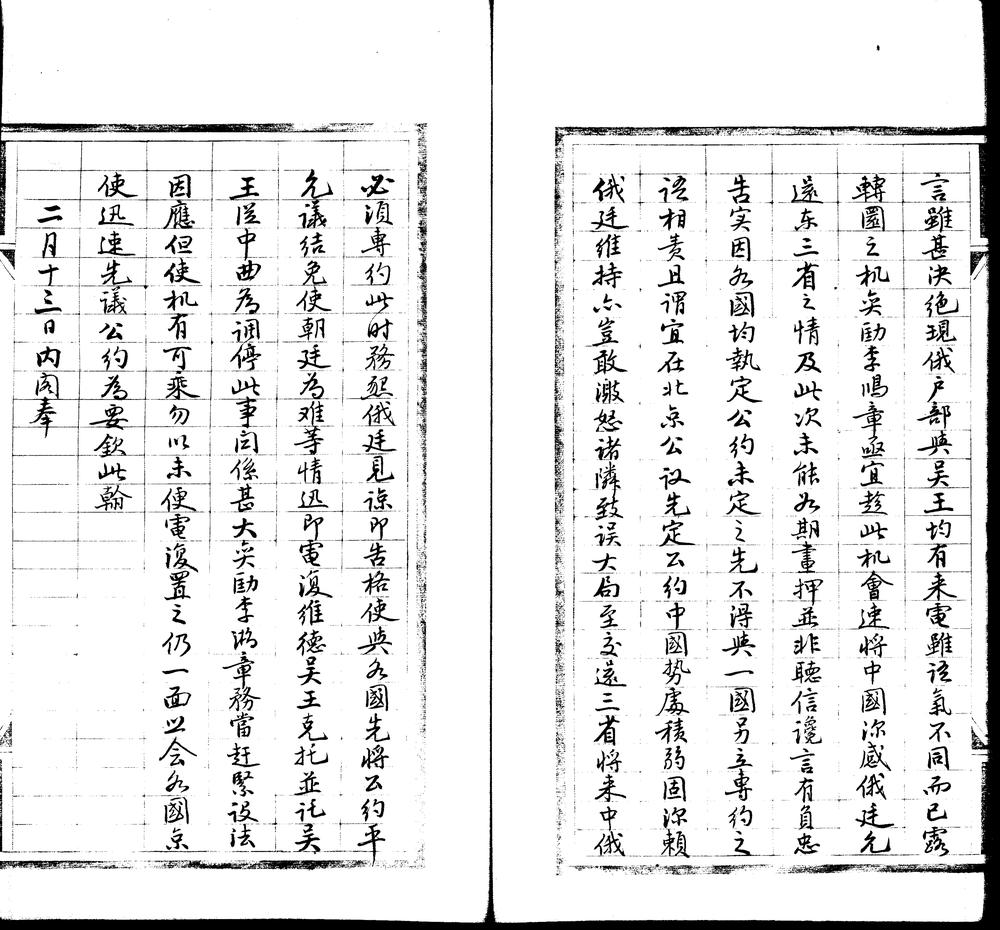 言雖甚决绝現俄户部與吴王均有来電雖语氣不同而已露
轉圜之机奕劻李鴻章亟宜趁此机會速將中國深感俄廷允
還东三省之情及此次未能如期畫押並非聽信讒言有負忠
告实因各國均執定公約未定之先不得與一國另立專約之
语相责且谓宜在北京公议先定公約中國势處積弱固深賴
俄廷维持亦豈敢激怒诸隣致误大局至交還三省将来中俄
必須專約此时務懇俄廷見谅即告格使與各國先將公約平
允議结免使朝廷為难等情迅即電復维德吴王克托並託吴
王從中曲為调停此事関係甚大奕劻李鴻章務當赶緊设法
因應但使机有可乘勿以未便電復置之仍一面照会各國京
使迅速先議公約為要欽此翰
二月十三日内阁奉